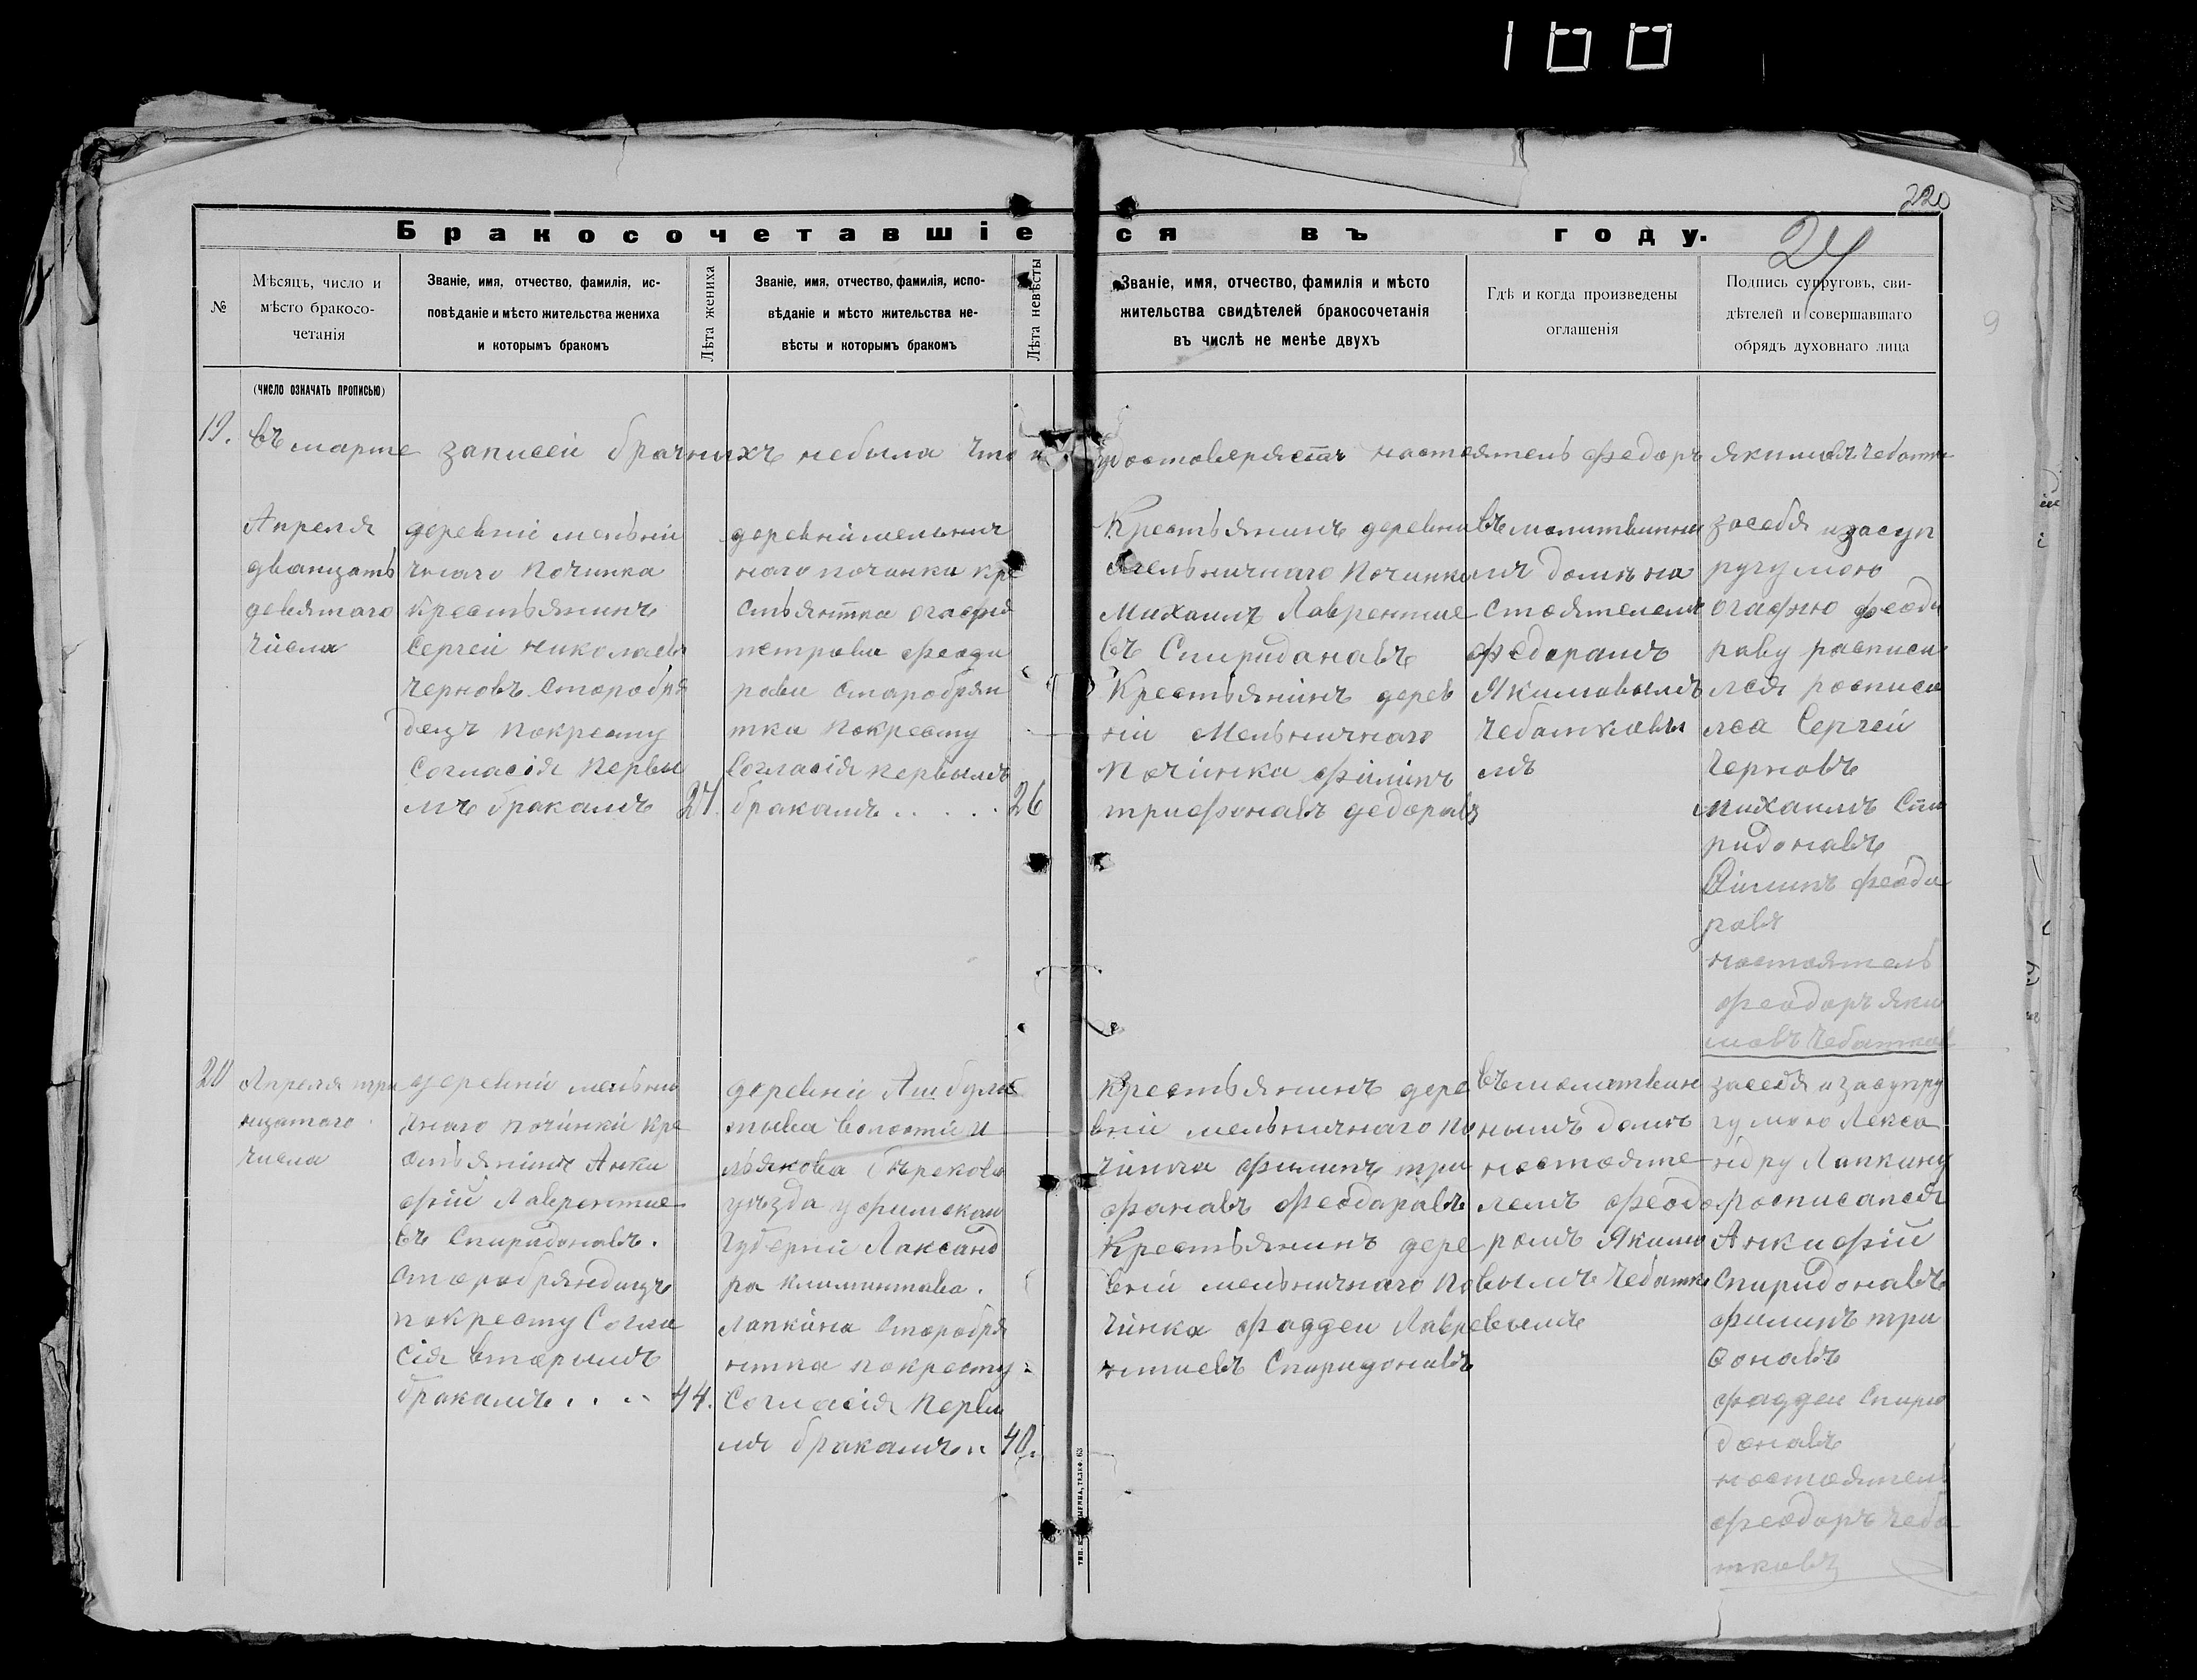 100
220
24
Бракосочетавшіеся въ году.
№
Мѣсяцъ, число и
мѣсто бракосо-
четанія
Званіе, имя, отчество, фамилія, ис-
повѣданіе и мѣсто жительства жениха
и которымъ бракомъ
Лѣта жениха
Званіе, имя, отчество, фамилія, испо-
вѣданіе и мѣсто жительства не-
вѣсты и которымъ бракомъ
Лѣта невѣсты
Званіе, имя, отчество, фамилія и мѣсто
жительства свидѣтелей бракосочетанія
въ числѣ не менѣе двухъ
Гдѣ и когда произведены
оглашенія
Подпись супруговъ, сви-
дѣтелей и совершавшаго
обрядъ духовнаго лица
(число означать прописью)
19. въ марте записей брачныхъ небыла что и удостоверяетъ настоятель Федоръ Якимовъ
Апреля
дванцать
девятаго
числа
деревніи мельни
чнаго Починка
Крестьянинъ
Сергей Николаевъ
Черновъ Старобря
децъ покресту
Согласія Первы
мъ бракамъ 27.
деревній мельнич
наго починка кре
стьянтка огафия
петрова Феоди
рова Старобрян
тка Покресту
Согласія первымъ
бракамъ . . . . 26
Крестьянинъ деревни
Мельничнаго Починка
Михаилъ Лаврентие
въ Спиридонавъ
Крестьянинъ дерев
ній Мельничнаго
Починка Филипъ
трифонавъ Федоравъ
въ молитвинни
мъ домѣ на
стоятелемъ
Федорамъ
Якимовымъ
Чебаткавы
мъ
засебя и засуп
ругу мою
Огафию Феоди
рову расписи
лся росписа
лса Сергей
Черновъ
Михаилъ Спи
ридонавъ
Филипъ Феоди
ровъ
настоятель
Феодоръ Яки
мовъ Чебатков
20
Апреля три
нцатого
числа
деревній мельни
чнаго починкй кре
стьянинъ Анки
фій Лаврентие
въ Спиридонавъ.
Старобряндицъ
покресту Согла
сія вторымъ
бракамъ. . . 44.
деревній
тыва волости И
льякова Бѣрсково
уѣзда уфимскай
Губерній Лаксанд
ра
Лапкина Старобря
нтка покресту
Согласія Первы
мъ бракамъ.. 40.
Крестьянинъ дере
вній мельничнаго По
чинка Филипъ три
фанавъ Феодаравъ
Крестьянинъ дере
вній мельничнаго По
чинка Фаддеи Лавре
нтиевъ Спиридонавъ
въ молатвин
нымъ домѣ
настояте
лемъ Феодо
ромъ Якимо
вымъ Чебатко
вымъ
засебя и засупру
гу мою Лекса
ндру Лапкину
росписался
Анкифій
Спиридонавъ
Филипъ три
Фонавъ
Фаддеи Спири
донавъ
настоятел
Феодоръ Чеба
тковъ